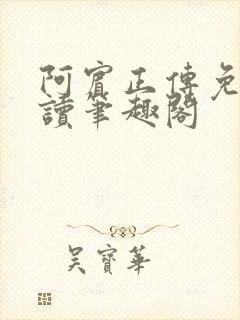 阿賓正傳免
讀筆趣閣
吳寶華